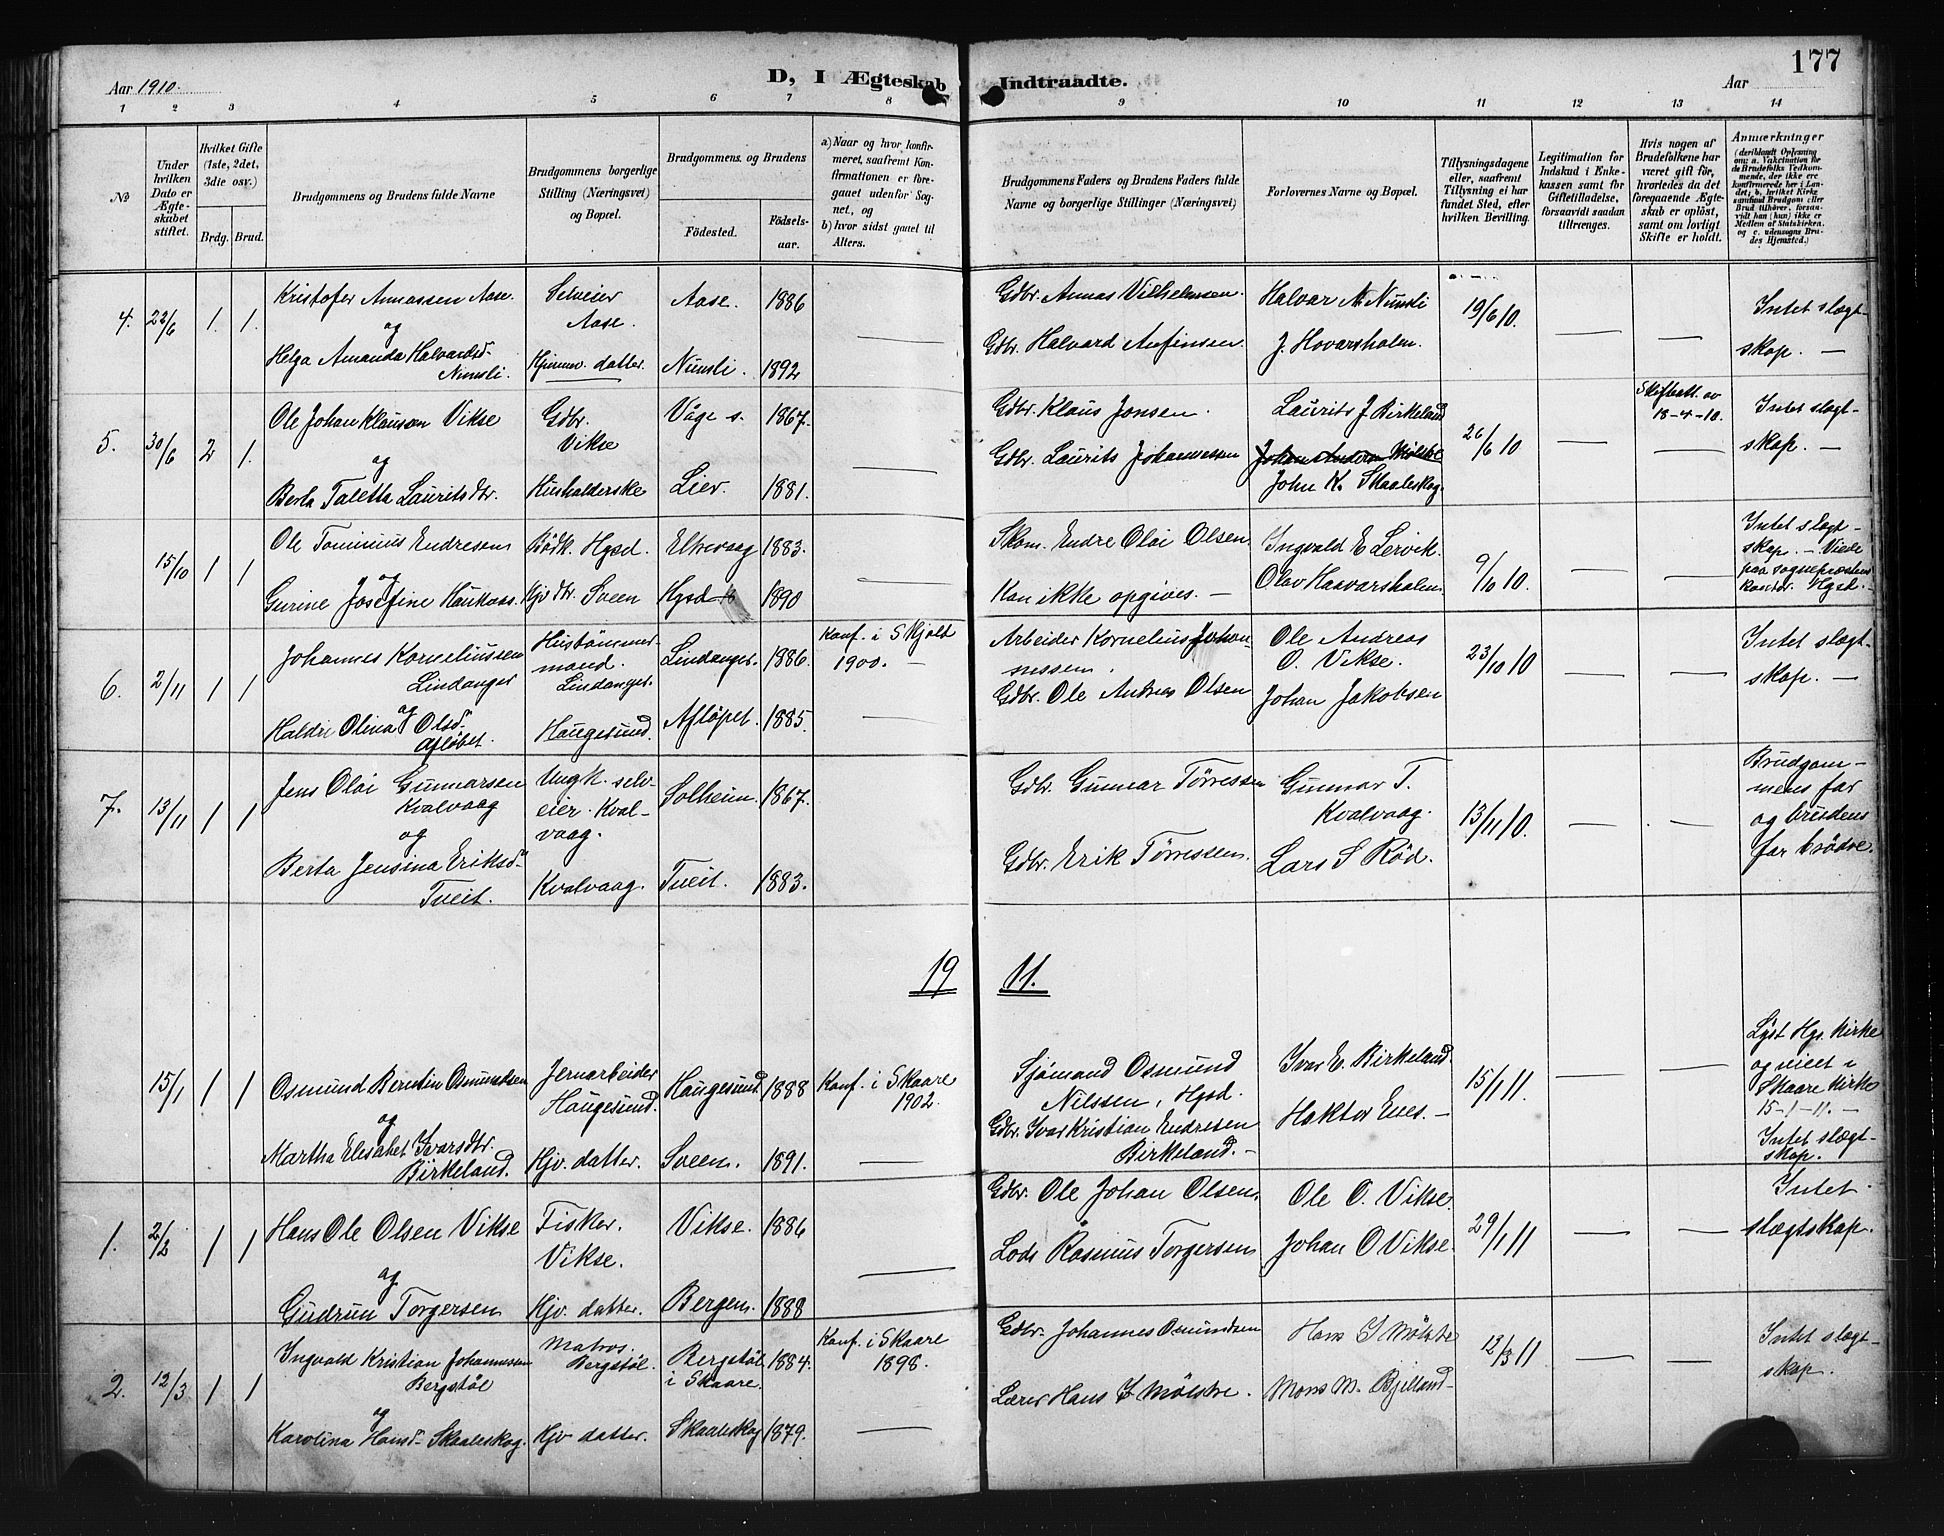 Aar 1910.
D, I Ægteskab Indtraadte.
Aar
177
1 2 3 4 5 6 7 8 9 10 11 12 13 14
No
Under hvilken Dato er Ægteskabet stiftet.
Hvilket Gifte (1ste, 2det, 3die osv.)
Brdg. Brud.
Brudgommens og Brudens fulde Navne
Brudgommens borgerlige Stilling (Næringsvei) og Bopæl.
Brudgommens og Brudens
Fødested. Fødsels-aar.
a) Naar og hvor konfirmeret, saafremt Konfirmationen er foregaaet udenfor Sognet, og
b) hvor sidst gaaet til Alters.
Brudgommens Faders og Brudens Faders fulde Navne og borgerlige Stillinger (Næringsvei)
Forlovernes Navne og Bopæl.
Tillysningsdagene eller, saafremt Tillysning ei har fundet Sted, efter hvilken Bevilling.
Legitimation for Indskud i Enkekassen samt for Giftetilladelse, forsaavidt saadan tiltrænges.
Hvis nogen af Brudefolkene har været gift før, hvorledes da det foregaaende Ægteskab er opløst, samt om lovligt Skifte er holdt.
Anmærkninger
(deriblandt Oplysning om: a. Vakcination for de Brudefolks Vedkommende, der ikke ere konfirmerede her i Landet; b. hvilket Kirkesamfund Brudgom eller Brud tilhører, forsaavidt han (hun) ikke er Medlem af Statskirken, og c. udensogns Brudes Hjemsted.)
4. 22/6 1. 1.
Kristofer Annassen Aase.
og
Helga Amanda Halvardsd. Numsli.
Selveier Aase.
Hjemmev. datter.
Aase. 1886
Numsli. 1892
Gdbr. Annas Vilhelmsen.
Gdbr. Halvard Anfinsen.
Halvar A. Numsli
J. Hovarsholm.
19/6 10.
Intet slægt-
skap. —
5. 30/6 2 1.
Ole Johan Klausen Vikse
og
Berta Taletta Lauritsdtr.
Gdbr. Vikse
Husholderske
Våge s. 1867.
Lier. 1881.
Gdbr. Klaus Jonsen.
Gdbr. Laurits Johannessen
Laurits J. Birkeland
John K. Skaaleskog.
26/6 10
Skifteatt. av
18-4-10.
Intet slægt-
skap. —
15/10 1 1
Ole Tominius Endresen
og
Gurine Josefine Haukaas.
Bødk. Hgsd.
Hjv dtr. Sveen
Elvevaag 1883.
Hgsd 1890
Skom. Endre Olai Olsen
Kan ikke opgives. —
Ingvald E Lervik.
Olav Haavarsholm
9/10 10.
Intet slægt-
skap. — Viede
paa sogneprestens
kontor. Hgsd.
6. 2/11 1 1
Johannes Korneliussen
Lindanger
og
Haldri Olina Olsd.
Afløbet.
Hustømmer-
mand.
Lindanger.
Haugesund.
Lindanger. 1886.
Afløpet. 1885.
Konf. i Skjold
1900. —
Arbeider Kornelius Johan-
nessen.
Gdbr. Ole Andreas Olsen
Ole Andreas
O. Vikse.
Johan Jakobsen
23/10 10
Intet slægt-
skap. —
7. 13/11 1 1
Jens Olai Gunnarsen
Kvalvaag
og
Berta Jensina Eriksd.
Tveit.
Ungk. selv-
eier. Kval-
vaag.
Kvalvaag.
Solheim. 1867.
Tveit. 1883.
Gdbr. Gunnar Tørressen
Gdbr. Erik Tørressen.
Gunnar T.
Kvalvaag.
Lars S Rød.
13/11 10.
Brudgom-
mens far
og brudens
far brødre.
19 11.
15/1 1 1
Osmund Berntin Osmundsen
og
Martha Elisabet Ivarsdtr.
Birkeland.
Jernarbeider
Haugesund.
Hjv. datter.
Haugesund 1888
Sveen. 1891.
Konf. i Skaare
1902.
Sjømand Osmund
Nilssen, Hgsd.
Gdbr. Ivar Kristian Endresen
Birkeland. —
Ivar E. Birkeland.
Haktor Enes. —
15/1 11.
Lyst Hgs. Kirke
og viet i
Skaare Kirke
15-1-11. —
Intet slægt-
skap.
1. 2/2 1 1
Hans Ole Olsen Vikse
og
Gudrun Torgersen
Fisker.
Vikse.
Hjv. datter.
Vikse. 1886
Bergen. 1888
Gdbr. Ole Johan Olsen.
Lods Rasmus Torgersen
Ole O. Vikse.
Johan O Vikse.
29/1 11
Intet
slægtskap.
2. 12/3 1 1
Ingvald Kristian Johannessen
Bergstøl
og
Karolina Hansd. Skaaleskog.
Matros.
Bergstøl.
Hjv datter.
Bergstøl
i Skaare.
1884.
Skaaleskog 1879.
Konf. i Skaare
1898.
Gdbr. Johannes Osmundsen
Lærer Hans J Mølstre.
Hans J Mølstre
Mons M. Bjelland
12/3 11
Intet slægt-
skap.